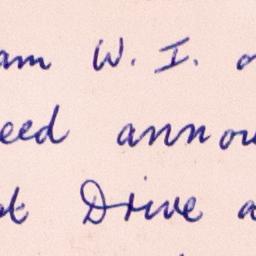 am W. I. a
eed annou
ok Drive a